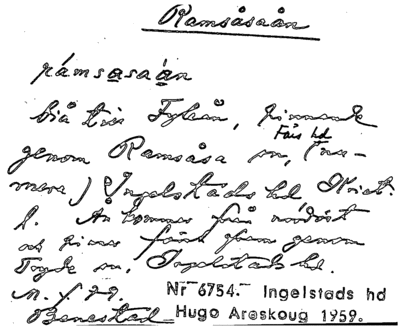 Ramsåsaån
rámsasaán
biå till Fyleån, rinnande
Färs hd
genom Ramsåsa sn, (nu-
mera) Ingelstads hd Krist.
l. Ån kommer från nordöst
och rinner fram genom
Tryde sn, Ingelstads hd.
Benestad
Nr 6754.- Ingelstads hd
Hugo Areskoug 1959.